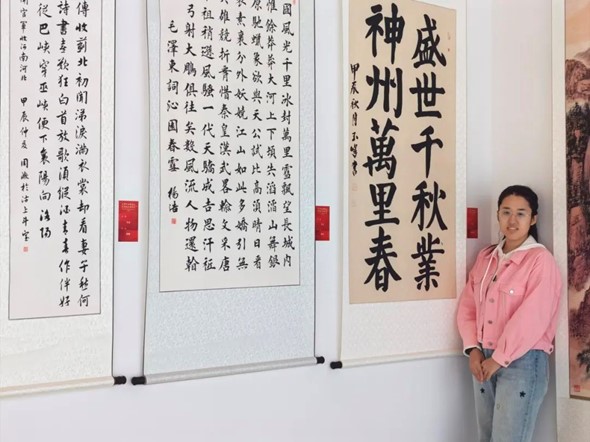 傳收薊北初聞涕淚滿衣裳却看妻子愁何
詩書喜欲狂白首放歌須縱酒青春作伴好
從巴峽穿巫峽便下襄陽向洛陽
官軍收河南河北 甲辰仲夏
國風光千里冰封萬里雪飄望長城內
惟餘莽莽大河上下頓失滔滔山舞銀
原馳蠟象欲與天公試比高須晴日看
裝素裹分外妖嬈江山如此多嬌引無
雄競折腰惜秦皇漢武略輸文采唐
祖稍遜風騷一代天驕成吉思汗祇
弓射大鵰俱往矣數風流人物還看
毛澤東詞沁園春雪 楊浩
盛世千秋業
神州萬里春
甲辰秋月